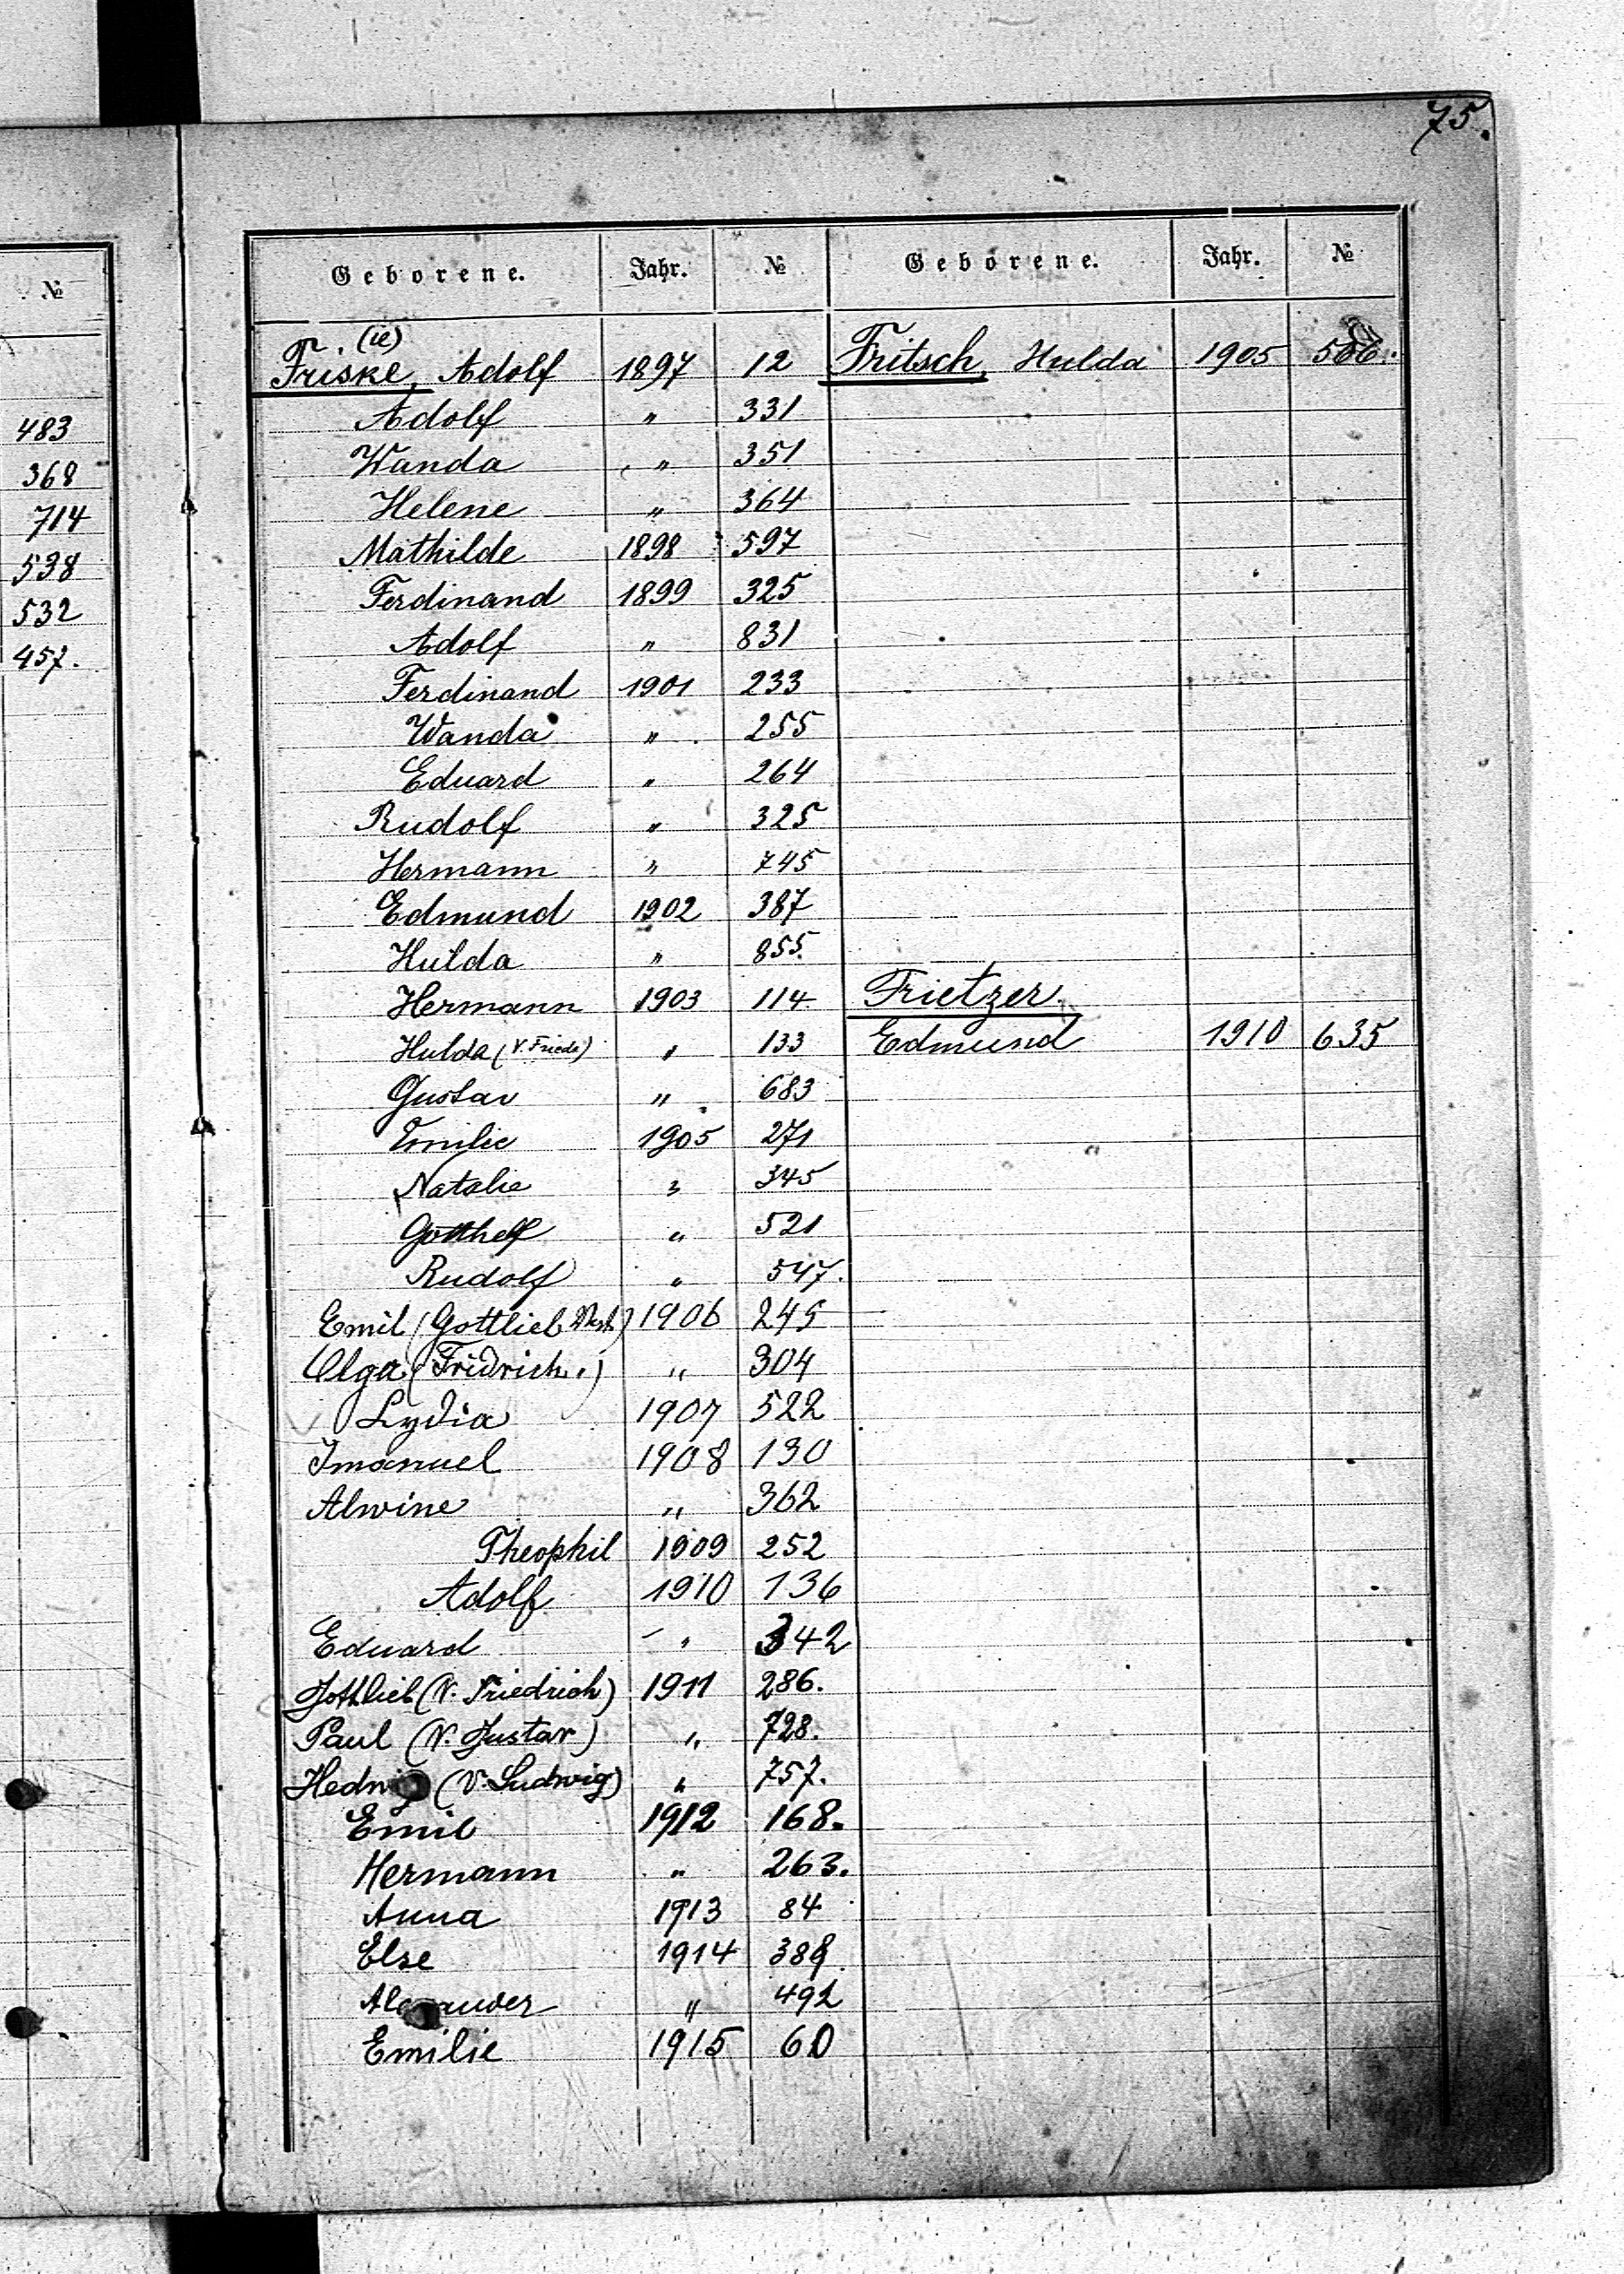 75.
№
483
368
714
538
532
457.
Geborene. Jahr. № Geborene. Jahr. №
(ie)
Friske, Adolf 1897 12 Fritsch, Hulda 1905 506.
Adolf " 331
Wanda " 351
Helene " 364
Mathilde 1898 597
Ferdinand 1899 325
Adolf " 831
Ferdinand 1901 233
Wanda " 255
Eduard " 264
Rudolf " 325
Hermann " 745
Edmund 1902 387
Hulda " 855.
Hermann 1903 114 Frietzer.
Hulda (V. Friedr) " 133 Edmund 1910 635
Gustav " 683
Emilie 1905 271
Natalie " 345
Gotthelf " 521
Rudolf " 547.
Emil (Gottlieb) 1906 245
Olga (Fridrich.) " 304
Lydia 1907 522
Imanuel 1908 130
Alwine " 362
Theophil 1909 252
Adolf 1910 136
Eduard " 342
Gottlieb (V. Friedrich) 1911 286.
Paul (V. Gustav) " 728.
Hedwig (V. Ludwig) " 757.
Emil 1912 168.
Hermann " 263.
Anna 1913 84
Else 1914 389.
Alexander " 492
Emilie 1915 60